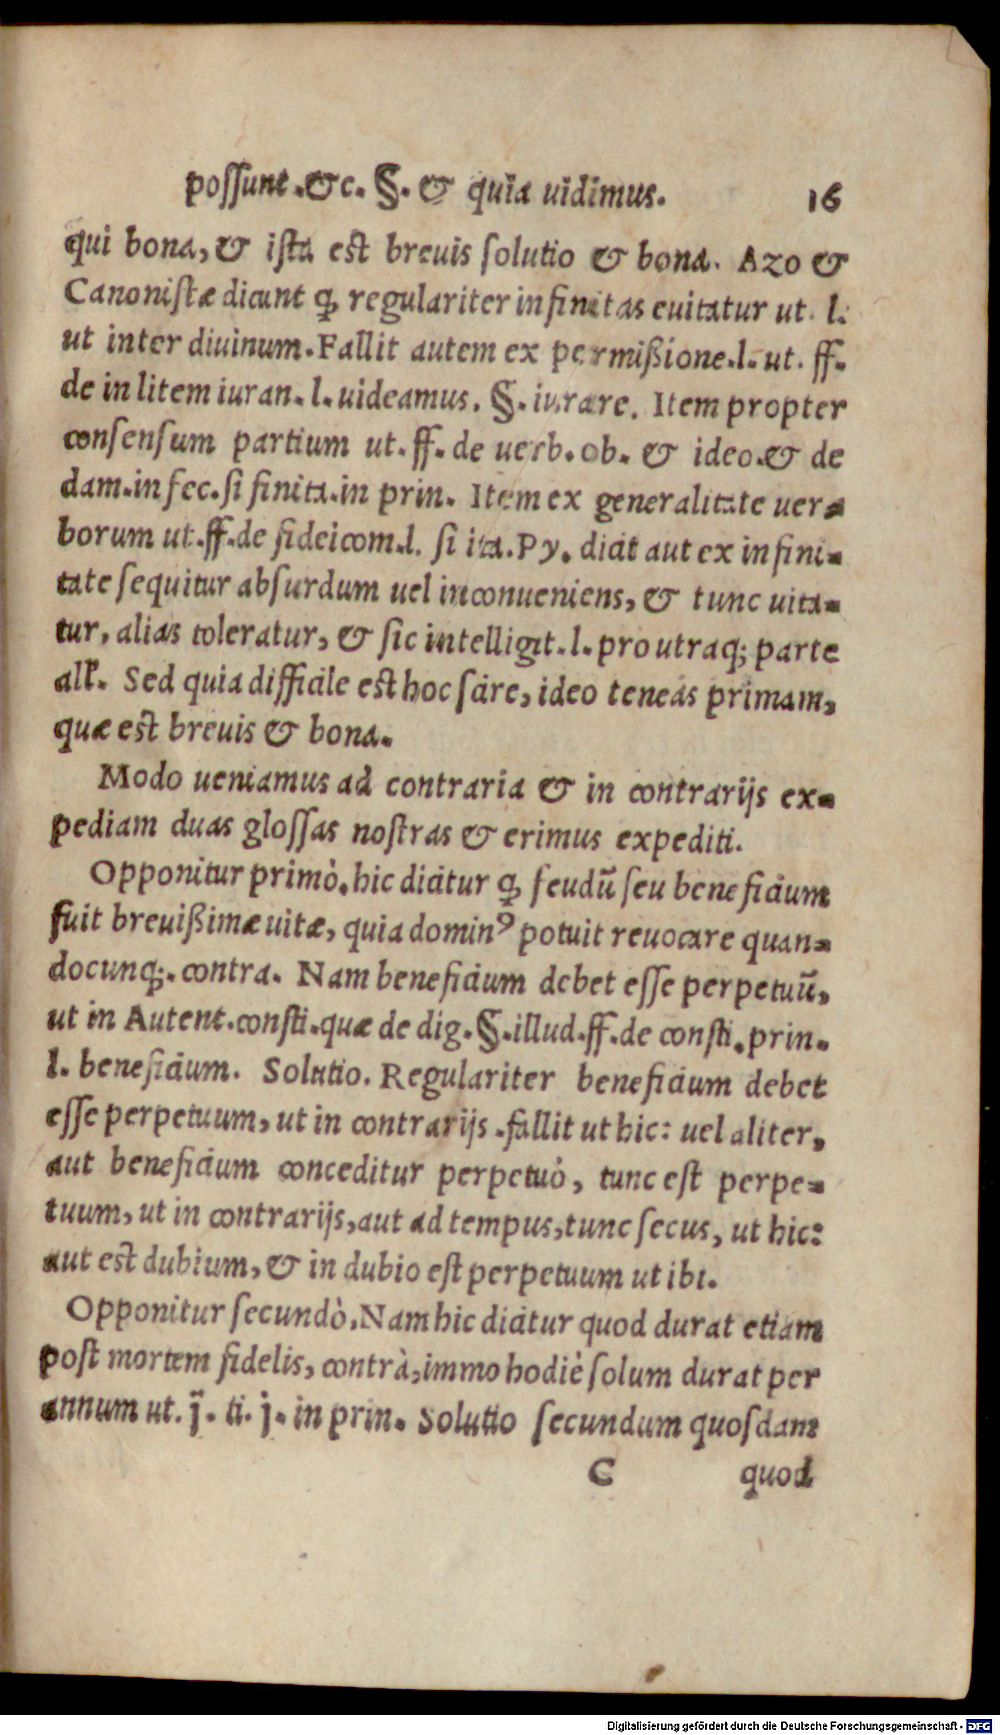 possunt.&c. §. & quia uidimus. 16
qui bona, & ista est breuis solutio & bona. Azo &
Canonistæ dicunt ꝙ regulariter infinitas euitatur ut. l.
ut inter diuinum. Fallit autem ex permißione.l. ut. ff.
de in litem iuran. l. uideamus. §. iurare. Item propter
consensum partium ut. ff. de uerb. ob. & ideo.& de
dam.infec.si finita.in prin. Item ex generalitate uer=
borum ut.ff.de fideicom.l. si ita. Py. dicit aut ex infini=
tate sequitur absurdum uel inconueniens, & tunc uita=
tur, alias toleratur, & sic intelligit.l. pro utraq; parte
all'. Sed quia difficile est hoc scire, ideo teneas primam,
quæ est breuis & bona.
Modo ueniamus ad contraria & in contrarijs ex=
pediam duas glossas nostras & erimus expediti.
Opponitur primò. hic dicitur ꝙ feudū seu beneficium
fuit breuißimæ uitæ, quia dominꝰ potuit reuocare quan=
docunq;. contra. Nam beneficium debet esse perpetuū,
ut in Autent.consti.quæ de dig. §. illud.ff.de consti.prin.
l. beneficium. Solutio. Regulariter beneficium debet
esse perpetuum, ut in contrarijs .fallit ut hic: uel aliter,
aut beneficium conceditur perpetuò, tunc est perpe=
tuum, ut in contrarijs, aut ad tempus, tunc secus, ut hic:
aut est dubium, & in dubio est perpetuum ut ibi.
Opponitur secundò. Nam hic dicitur quod durat etiam
post mortem fidelis, contrà, immo hodiè solum durat per
annum ut. j̄. ti. j. in prin. Solutio secundum quosdam
C quod
Digitalisierung gefördert durch die Deutsche Forschungsgemeinschaft - DFG